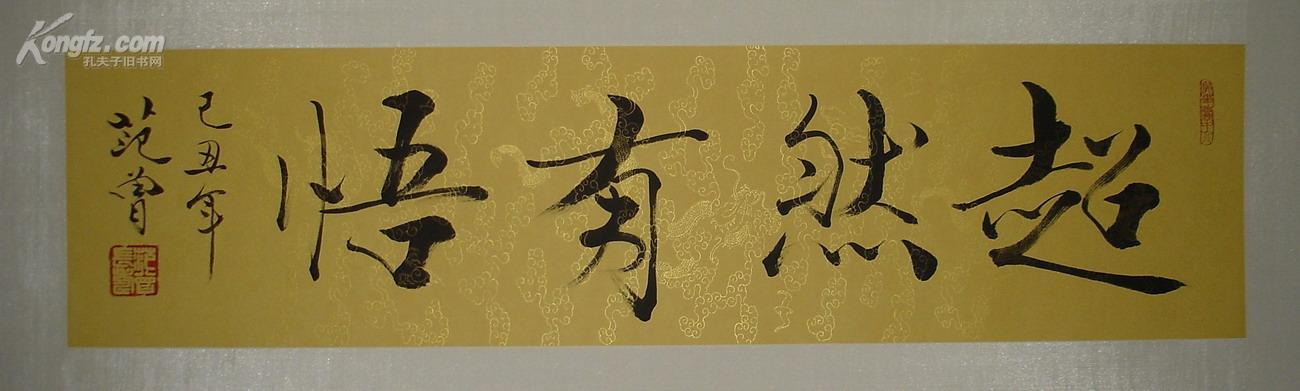 超然有悟
己丑年
范曾
Kongfz.com
孔夫子旧书网